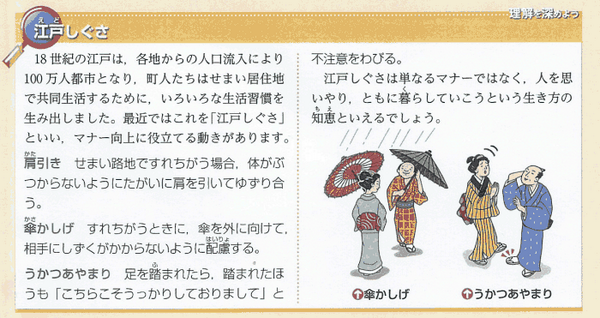 理解を深めよう
江戸しぐさ
えど
18世紀の江戸は，各地からの人口流入により
100万人都市となり，町人たちはせまい居住地
で共同生活するために，いろいろな生活習慣を
生み出しました。最近ではこれを「江戸しぐさ」
といい，マナー向上に役立てる動きがあります。
かた
肩引き　せまい路地ですれちがう場合，体がぶ
つからないようにたがいに肩を引いてゆずり合
う。
かさ
傘かしげ　すれちがうときに，傘を外に向けて，
はいりょ
相手にしずくがかからないように配慮する。
ふ
うかつあやまり　足を踏まれたら，踏まれたほ
うも「こちらこそうっかりしておりまして」と
不注意をわびる。
江戸しぐさは単なるマナーではなく，人を思
く
いやり，ともに暮らしていこうという生き方の
ちえ
知恵といえるでしょう。
傘かしげ
うかつあやまり